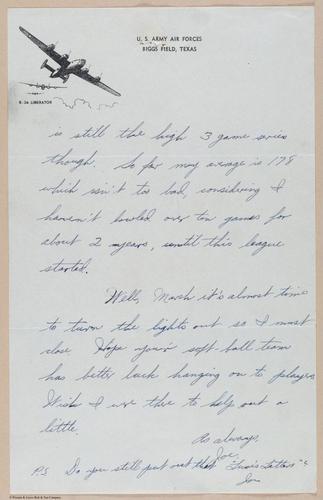 U. S. ARMY AIR FORCES
BIGGS FIELD, TEXAS
B-24 LIBERATOR
is still the high 3 game series
though. So far my average is 178
which isn't too bad, considering I
haven't bowled over ten games for
about 2 years, until this league
started.
Well, Marsh it's almost time
to turn the lights out so I must
close Hope your soft ball team
has better luck hanging on to players
Wish I were there to help out a
little.
As always,
Joe
P.S Do you still put out that "Letters"?
Joe